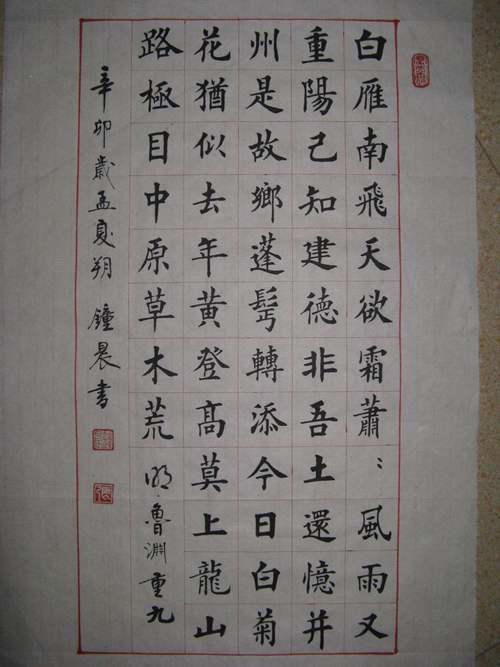 白雁南飛天欲霜蕭〻風雨又
重陽己知建德非吾土還憶并
州是故鄉蓬髩轉添今日白菊
花猶似去年黄登高莫上龍山
路極目中原草木荒 明魯淵重九
辛卯歲孟夏朔 鐘晨書
張